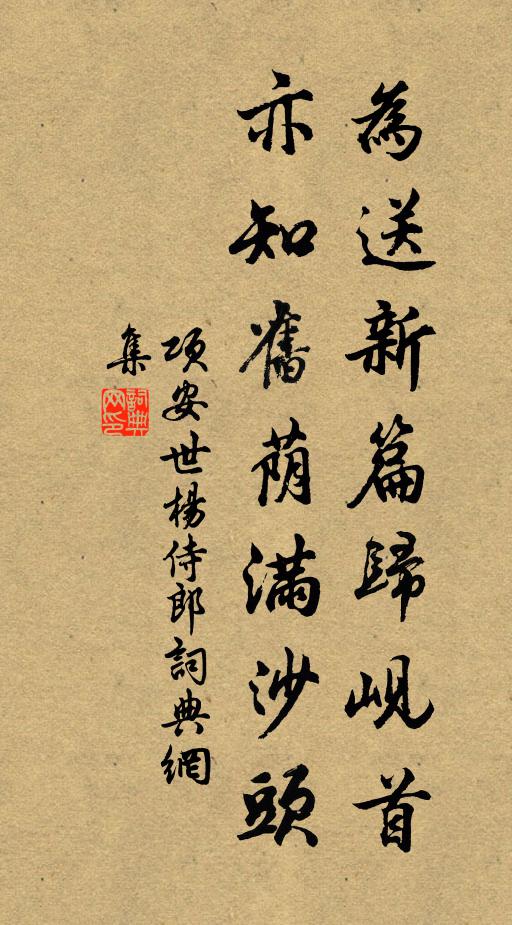 為送新篇歸峴首
亦知舊蔭滿沙頭
項安世楊侍郎詞典網
集
詞典網印